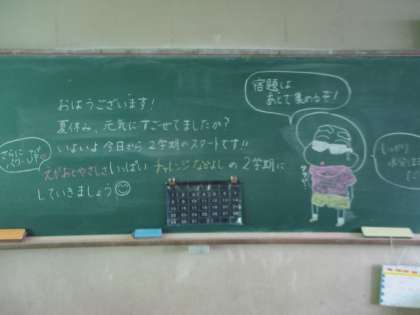 おはようございます!
夏休み、元気にすごせてましたか?
いよいよ今日から2学期のスタートです!!
えがおとやさしさいっぱい チャレンジ なかよしの2学期に
していきましょう
さらに
宿題は
あとで集めるぞ!
しっかり